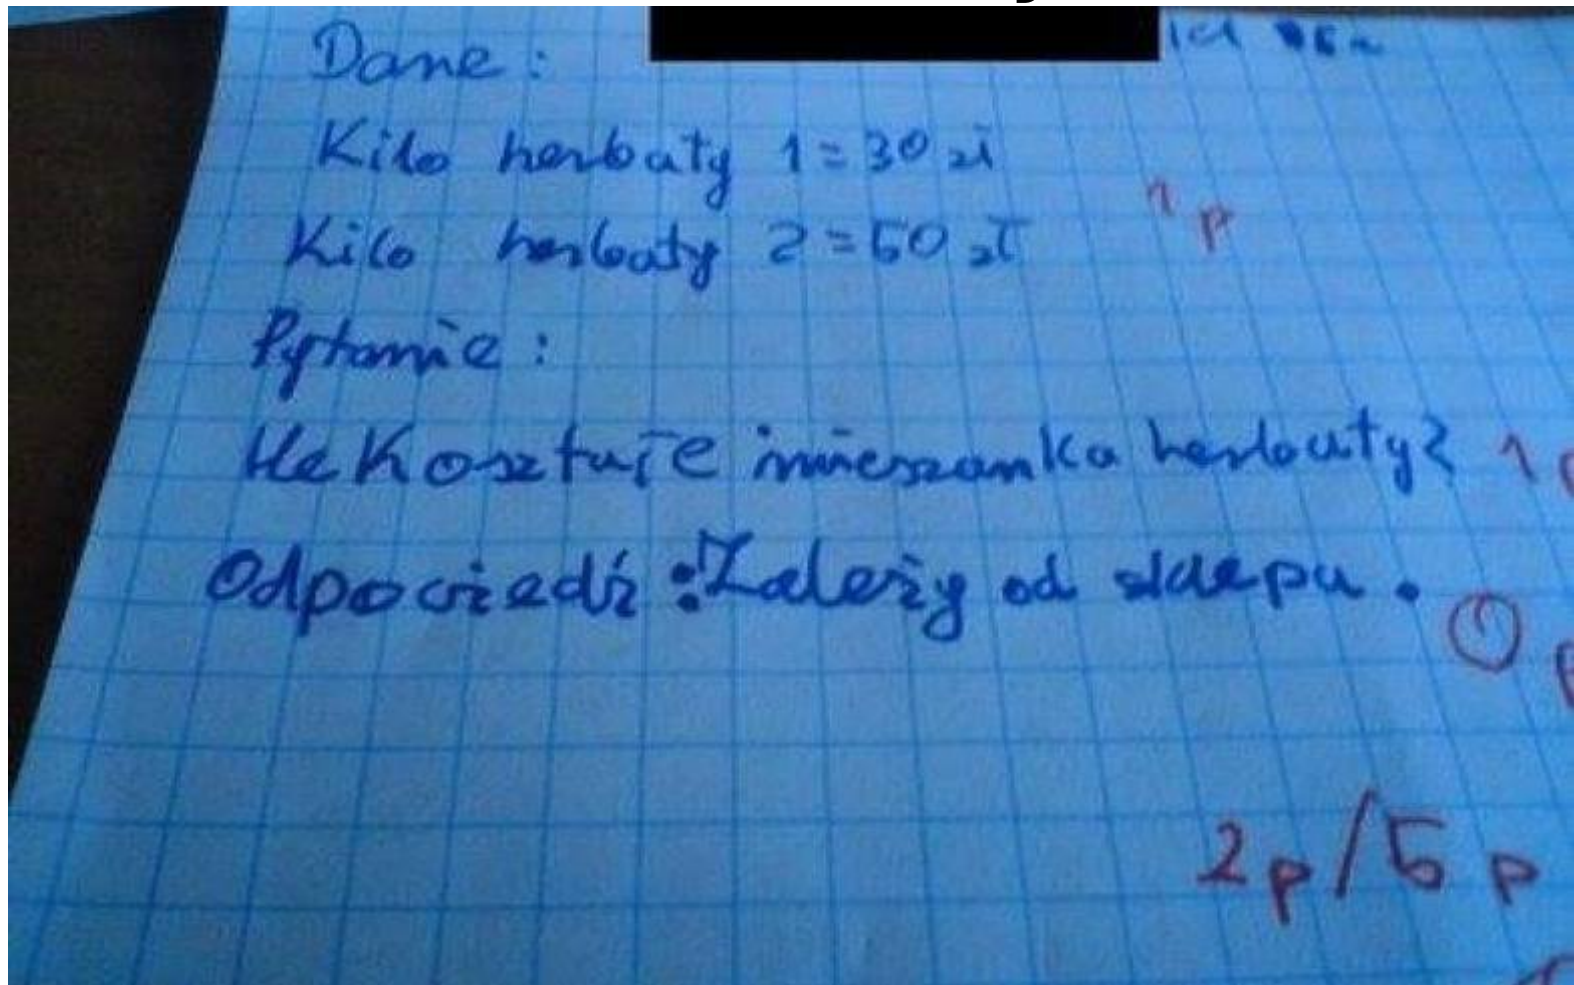 Dane:
Kilo herbaty 1=30 zł
1p
Kilo herbaty 2=50 zł
Pytanie:
Ile Kosztuje mieszanka herbaty?
1p
Odpowiedź: Zależy od sklepu.
0p
2p/5p